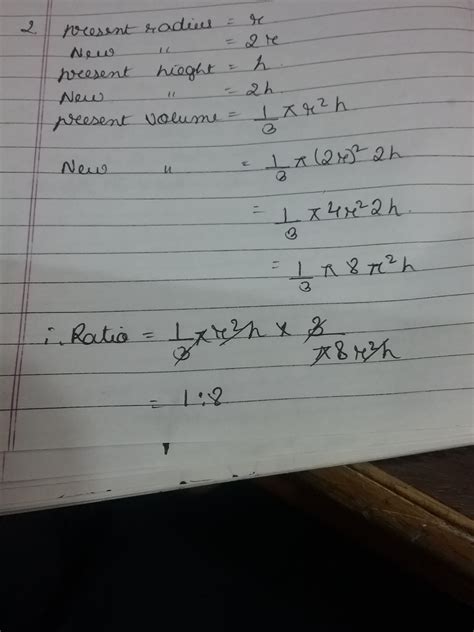 2. present radius = r
New " = 2r
present hieght = h
New " = 2h
present volume = 1/3 πr²h
New " = 1/3 π(2r)² 2h
= 1/3 π4r²2h.
= 1/3 π8π²h
∴ Ratio = 1/3 πr²h × 3/π8r²h
= 1:8